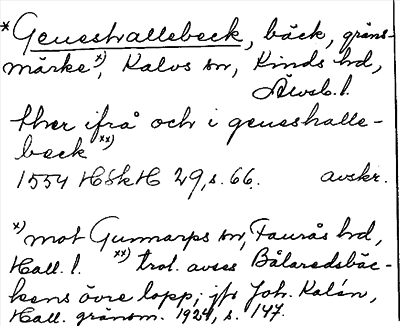 * Geneshallebeck, bäck, gräns-
märke x), Kalvs sn, Kinds hd,
Älvsb. l.
ther ifrå och i geneshalle-
beck xx)
1554 HSkH 29, s. 66. avskr.
x) mot Gunnarps sn, Faurås hd,
Hall. l. xx) trol. avses Bålaredsbäc-
kens övre lopp; jfr Joh. Kalén,
Hall. gränsm. 1924, s. 147.